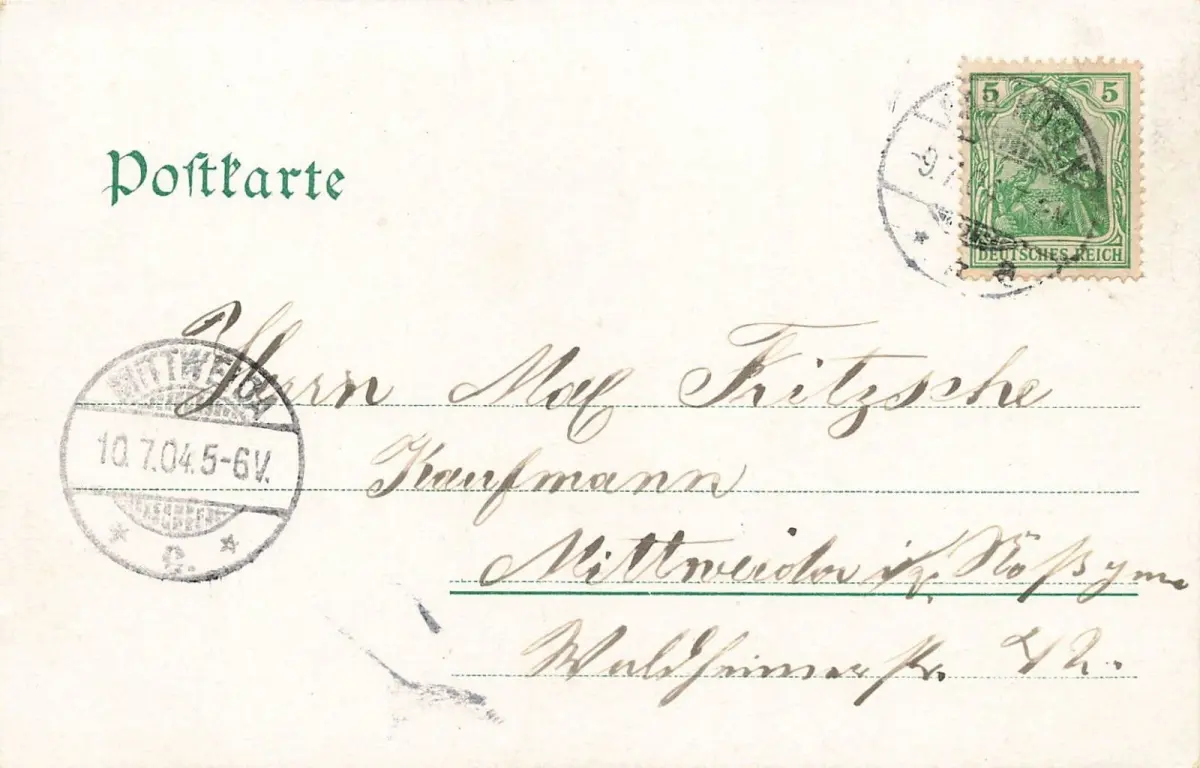 Postkarte
5 5
DEUTSCHES REICH
Herrn Max Fritzsche
Kaufmann
Mittweida
Waldheimerstr.
MITTWEIDA
10.7.04.5-6V.
* c. *